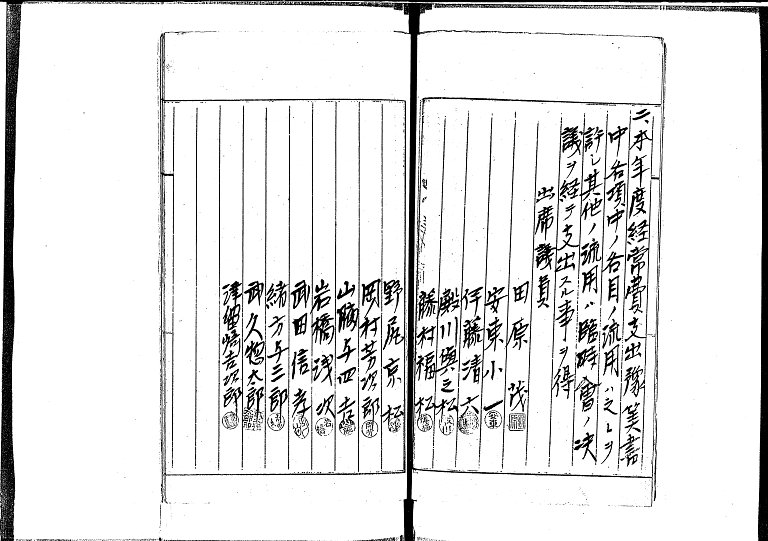 二、本年度経常費支出豫算書
中各項中ノ各目ノ流用ハ之レヲ
許シ其他ノ流用ハ臨時會ノ決
議ヲ経テ支出スル事ヲ得
出席議員
田原茂
安東小一
伊藤清六
川與之松
藤村福松
野尻京松
岡村芳次郎
山脇与四
岩橋浅次
武田信孝
緒方与三郎
武久惣太郎
津吉次郎